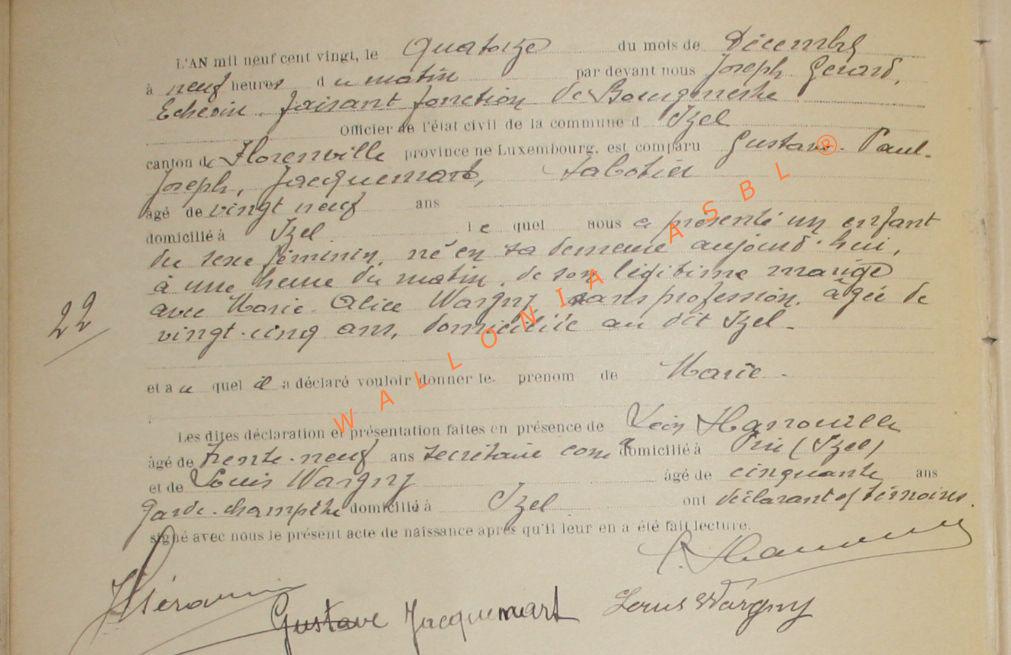 L'AN mil neuf cent vingt, le Quatorze du mois de Décembre
à neuf heures du matin par devant nous Joseph Gérard,
Echevin faisant fonction de Bourgmestre
Officier de l'état civil de la commune d Izel
canton de Florenville province de Luxembourg, est comparu Gustave-Paul-
Joseph, Jacquemart, Sabotier
âgé de vingt neuf ans
domicilié à Izel le quel nous a présenté un enfant
du sexe féminin, né en sa demeure aujourd'hui,
à une heure du matin, de son légitime mariage
avec Marie-Alice Wargny sans profession, âgée de
22
vingt-cinq ans, domiciliée au dit Izel-
et au quel il a déclaré vouloir donner le prenom de Marie-
Les dites déclaration et présentation faites en présence de Léon
âgé de trente-neuf ans secrétaire comal domicilié à Pin (Izel)
et de Louis Wargny âgé de cinquante ans
garde-champêtre domicilié à Izel ont déclarant et témoins
signé avec nous le présent acte de naissance après qu'il leur en a été fait lecture.
Gustave Jacquemart Louis Wargny
WALLONIA ASBL ®